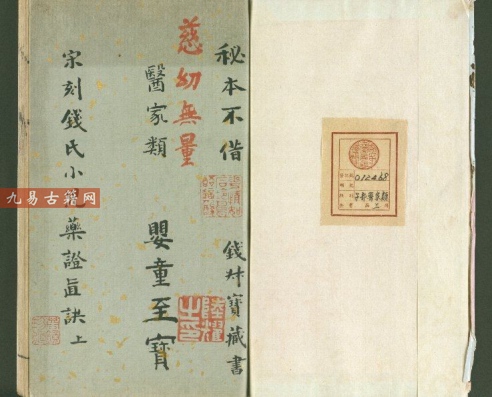 秘本不借
錢叔寶藏書
慈幼無量
醫家類
嬰童至寶
宋刻錢氏小兒藥證直訣上
九易古籍网
012468
子部醫家類